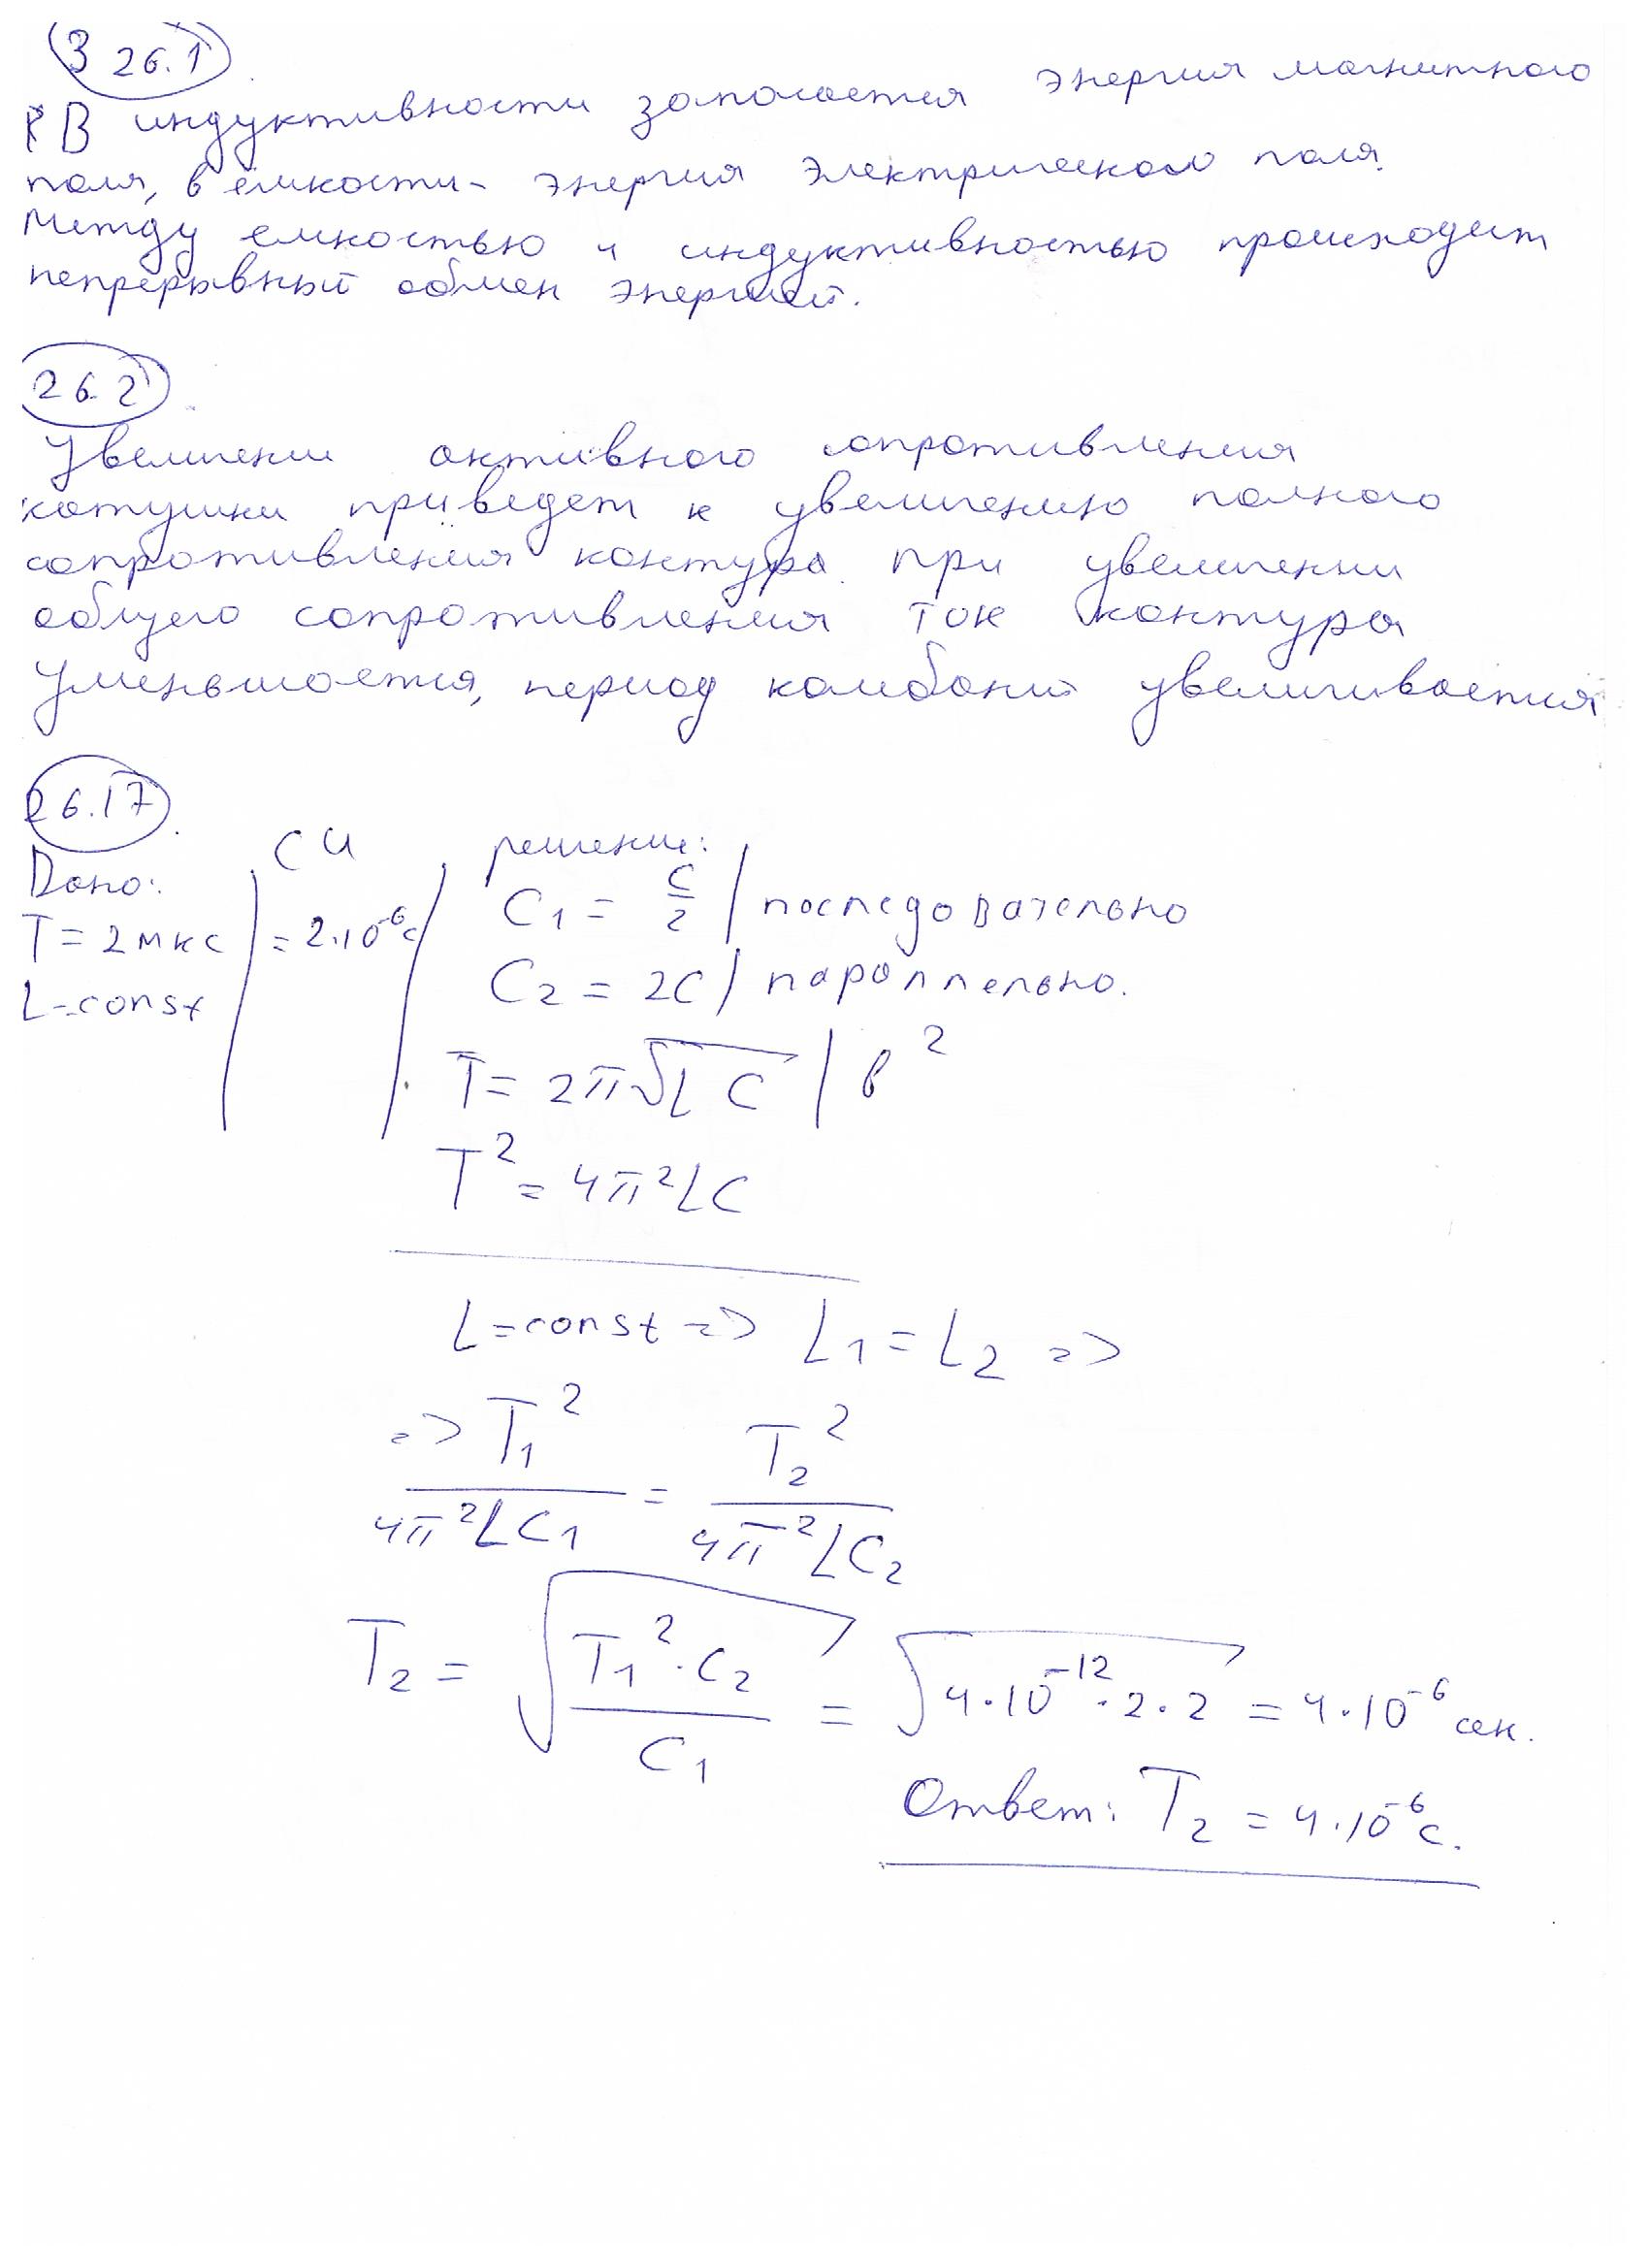 З 26.1
В индуктивности запасается энергия магнитного
поля, в ёмкости - энергия электрического поля.
Между емкостью и индуктивностью происходит
непрерывный обмен энергией.
26.2
Увеличении активного сопротивления
катушки приведет к увеличению полного
сопротивления контура. при увеличении
общего сопротивления ток контура
уменьшается, период колебаний увеличивается
26.17
Дано: СИ решение:
T = 2 мкс = 2·10⁻⁶ с C₁ = C/2 | последовательно
L = const C₂ = 2C | параллельно.
T = 2π√LC | в ²
T² = 4π²LC
L = const => L₁ = L₂ =>
=> T₁²/4π²LC₁ = T₂²/4π²LC₂
T₂ = √(T₁²·C₂/C₁) = √(4·10⁻¹²·2·2) = 4·10⁻⁶ сек.
Ответ: T₂ = 4·10⁻⁶ с.